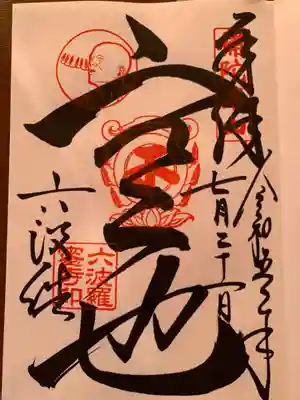 奉拝
令和
七月二十
空也
六波羅
六波羅
蜜寺印